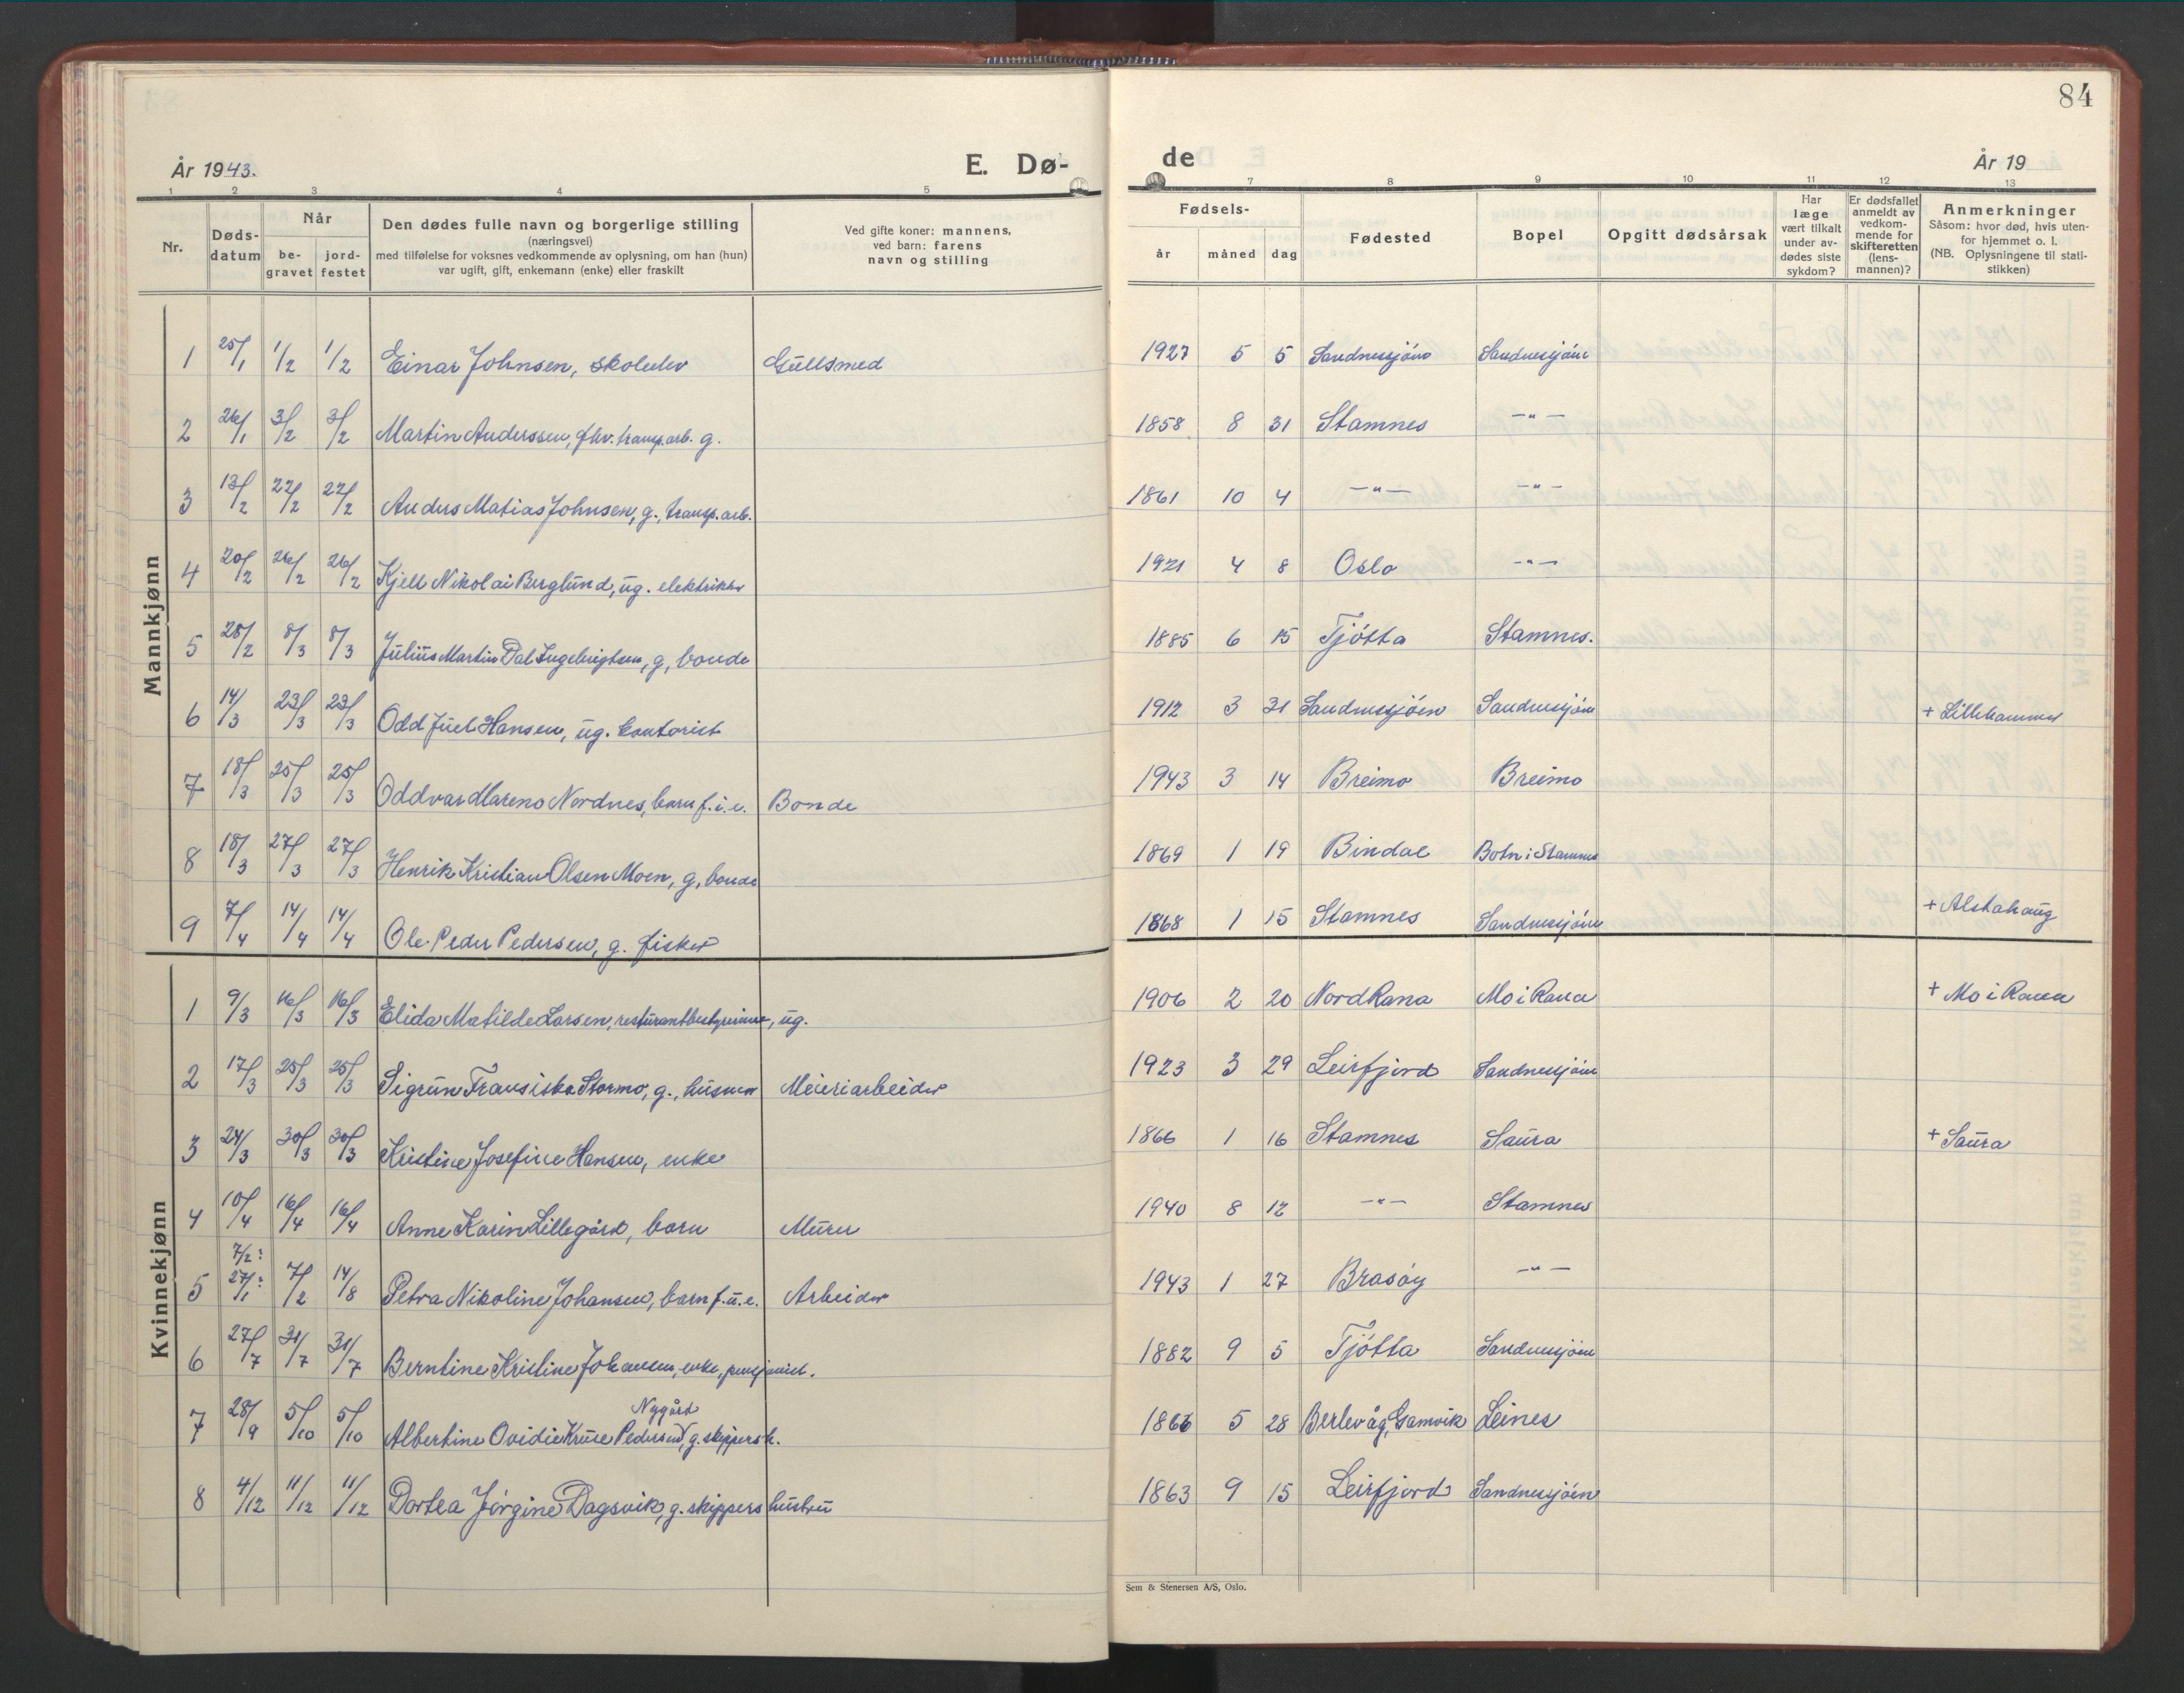 84
År 1943.
E. Dø-
de
År 19
1 2 3 4 5 7 8 9 10 11 12 13
Nr.
Døds-
datum
Når
be-
gravet
jord-
festet
Den dødes fulle navn og borgerlige stilling
(næringsvei)
med tilføielse for voksnes vedkommende av oplysning, om han (hun)
var ugift, gift, enkemann (enke) eller fraskilt
Ved gifte koner: mannens,
ved barn: farens
navn og stilling
Fødsels-
år måned dag
Fødested
Bopel
Opgitt dødsårsak
Har
læge
vært tilkalt
under av-
dødes siste
sykdom?
Er dødsfallet
anmeldt av
vedkom-
mende for
skifteretten
(lens-
mannen)?
Anmerkninger
Såsom: hvor død, hvis uten-
for hjemmet o. l.
(NB. Oplysningene til stati-
stikken)
Mannkjønn
1 25/1 1/2 1/2 Einar Johnsen, skoleelev Gullsmed 1927 5 5 Sandnessjøen Sandnessjøen
2 26/1 3/2 3/2 Martin Anderssen, fhv. transp.arb. g. 1858 8 31 Stamnes —"—
3 13/2 22/2 22/2 Anders Matias Johnsen, g., transp.arb. 1861 10 4 —"— —"—
4 20/2 26/2 26/2 Kjell Nikolai Berglund, ug. elektriker 1921 4 8 Oslo —"—
5 28/2 8/3 8/3 Julius Martin Dal Ingebrigtsen, g, bonde 1885 6 15 Tjøtta Stamnes.
6 14/3 23/3 23/3 Odd Juel Hansen, ug. kontorist 1912 3 31 Sandnessjøen Sandnessjøen + Lillehammer
7 18/3 25/3 25/3 Oddvar Mareno Nordnes, barn f.i.e. Bonde 1943 3 14 Breimo Breimo
8 18/3 27/3 27/3 Henrik Kristian Olsen Moen, g, bonde 1869 1 19 Bindal Botn i Stamnes
9 7/4 14/4 14/4 Ole Peder Pedersen, g. fisker 1868 1 15 Stamnes Sandnessjøen + Alstahaug
Kvinnekjønn
1 9/3 16/3 16/3 Elida Matilde Larsen, resturantbestyrerinne, ug. 1906 2 20 Nord Rana Mo i Rana + Mo i Rana
2 17/3 25/3 25/3 Sigrun Fransiska Stormo, g., husmor Meieriarbeider 1923 3 29 Leirfjord Sandnessjøen
3 24/3 30/3 30/3 Kristine Josefine Hansen, enke 1866 1 16 Stamnes Saura + Saura
4 10/4 16/4 16/4 Anne Karin Lillegård, barn Murer 1940 8 12 —"— Stamnes
7/2:
5 27/1: 7/2 14/8 Petra Nikoline Johansen, barn f.u.e. Arbeider 1943 1 27 Brasøy —"—
6 27/7 31/7 31/7 Berntine Kristine Johansen, enke, pensjonist. 1882 9 5 Tjøtta Sandnessjøen
Nygård
7 28/9 5/10 5/10 Albertine Ovidie Kruse Pedersen, g. skippersh. 1866 5 28 Berlevåg, Gamvik Leines
8 4/12 11/12 11/12 Dortea Jørgine Dagsvik, g. skippers hustru 1863 9 15 Leirfjord Sandnessjøen
Sem & Stenersen A/S, Oslo.